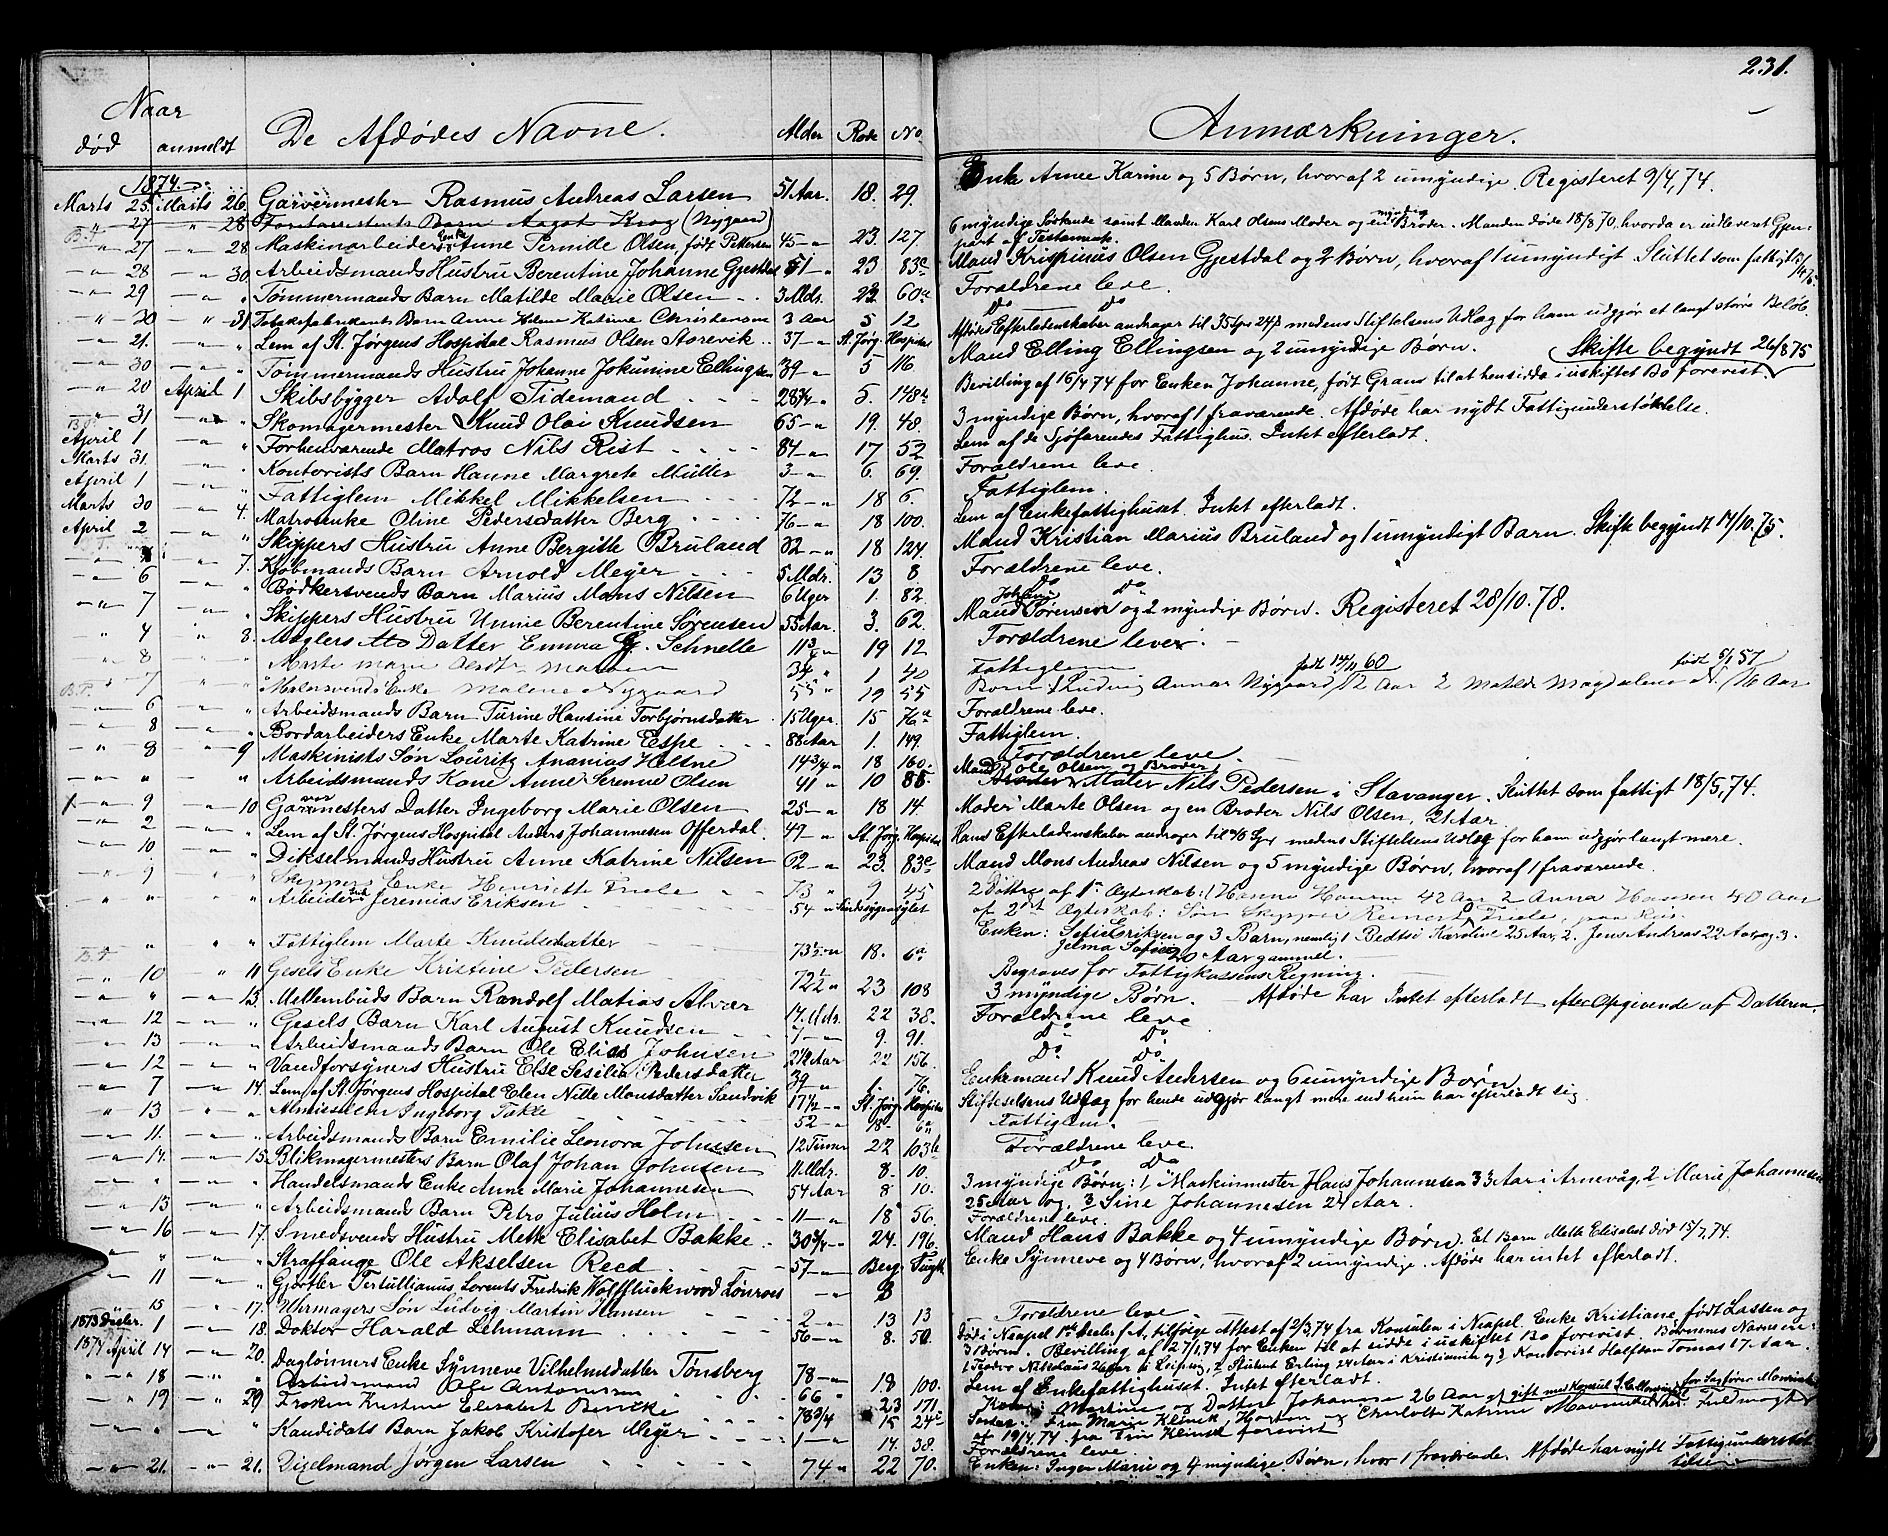 231.
Naar
død anmeldt De Afdødes Navne. Alder Rode No Anmærkninger.
1874.
Marts 25. Marts 26. Garvermester Rasmus Andreas Larsen 51 Aar. 18. 29. Enke Anne Karine og 5 Børn, hvoraf 2 umyndige. Registeret 9/4, 74.
" 27 " 28 Barn Aagot Krog (Nygaard)
B.F. " 27 " 28 Maskinarbeider Enke Anne Pernille Olsen, født Pettersen 45 -"- 23. 127. 6 myndige Søskende samt Manden Karl Olsens Moder og en myndig Broder. Manden døde 18/8 70, hvorda er indleveret Gjenpart af Testamente.
-"- 28 -"- 30. Arbeidsmands Hustru Berentine Johanne Gjestdal 51 -"- 23 83c Mand Krispinus Olsen Gjestdal og 2 Børn, hvoraf 1 umyndigt Sluttet som fattigt
-"- 29 -"- " Tømmermands Barn Matilde Marie Olsen 3 Mdr. 22 60a Forældrene leve.
-"- 30 " 31 Barn Anne Helene Katrine Christensen 3 Aar 5 12 Do Do
-"- 21. -"- " Lem af St. Jørgens Hospital Rasmus Olsen Storevik 37 -"- St. Jørg. Hospital Afdødes Efterladenskaber andrager til 35 medens Stiftelsens Udlæg for ham udgjør et langt større Beløb.
-"- 30 -"- " Tømmermands Hustru Johanne Jokumine Ellingsen 39 -"- 5 116 Mand Elling Ellingsen og 2 umyndige Børn. Skifte begyndt 26/8 75
-"- 20 April 1 Skibsbygger Adolf Tidemand 28 3/4 -"- 5. 148 Bevilling af 16/4 74 for Enken Johanne, født Grans til at hensidde i uskiftet Bo forevist.
-"- 31 -"- " Skomagermester Knud Olai Knudsen 65 -"- 19. 48. 3 myndige Børn, hvoraf 1 fraværende. Afdøde har nydt Fattigunderstøttelse.
April 1 -"- " Forhenværende Matros Nils Rist 84 -"- 17 52 Lem af de Sjøfarendes Fattighus. Intet efterladt.
Marts 31. -"- " Kontorists Barn Hanne Margrete Müller 3 -"- 6. 69. Forældrene leve.
April 1 -"- " Fattiglem Mikkel Mikkelsen 72 -"- 18 6. Fattiglem.
Marts 30 -"- 4. Matrosenke Oline Pedersdatter Berg 76 -"- 18 100. Lem af Enkefattighuset. Intet efterladt.
April 2 -"- " Skippers Hustru Anne Bergitte Bruland 32 -"- 18 124. Mand Kristian Marius Bruland og 1 umyndigt Barn. Skifte begyndt 14/10. 75.
-"- -"- 7. Kjøbmands Barn Arnold Meyer 5 Mdr. 13 8. Forældrene leve.
-"- 6 -"- " Bødkersvends Barn Marius Mons Nilsen 6 Uger 1. 82. Do Do
-"- 7 -"- " Skippers Hustru Unnine Berentine Sørensen 55 Aar. 3. 62. Mand Johannes Sørensen og 2 myndige Børn. Registeret 28/10. 78.
" 4 " 8. Mæglers Datter Emma G. Schnelle 11 3/4 -"- 19 12 Forældrene lever.
" 8 " " Marte Marie 34 " 1 40 Fattiglem
B.F. " 7 " " Malersvends Enke Malene Nygaard 55 " 19 55 Born 1 Ludvig Annar Nygaard født 14/11 60 12 Aar 2 Matilde Magdalene N. født 5/1 57 16 Aar
-"- 6 -"- " Arbeidsmands Barn Turine Hansine Torbjørnsdatter 15 Uger. 15 76a Forældrene leve.
-"- 8 -"- " Bordarbeiders Enke Marte Katrine Espe 88 Aar 1. 149. Fattiglem.
" 8 " 9 Maskinists Søn Louritz Ananias Heltne 14 3/4 -"- 18 160. Forældrene leve.
-"- " -"- " Arbeidsmands Kone Anne Serine Olsen 41 " 10 85. Mand Ole Olsen og Broder Maler Nils Pedersen i Stavanger. Sluttet som fattigt 18/5, 74.
1. -"- 9 -"- 10 Garvermesters Datter Ingeborg Marie Olsen 25 -"- 18 14. Moder Marte Olsen og en Broder Nils Olsen, 21 Aar.
-"- 2 -"- " Lem af St. Jørgens Hospital Anders Johannesen Offerdal. 47 " St. Jørg. Hospital Hans Efterladenskaber andrager til medens Stiftelsens Udlæg for ham udgjør langt mere.
-"- 10. -"- " Dikselmands Hustru Anne Katrine Nilsen 62 -"- 23. 83c Mand Mons Andreas Nilsen og 5 myndige Børn, hvoraf 1 fraværende.
" 9 " " Skippers Enke Henriette Friele 73 " 9 45 2 Døttre af 1ste Ægteskab: 1 Hanna 42 Aar 2 Anna Hansen 40 Aar af 2det Ægteskab: Søn Skipper Reinert Friele, paa Reise
" " " " Arbeider Jeremias Eriksen 54 " Sindssygeasylet Enken: Eriksen og 3 Børn, nemlig 1 Karoline 25 Aar, 2. Jens Andreas 22 Aar og 3. 20 Aar gammel.
B.F. " " " " Fattiglem Marte Knudsdatter 73 1/2 -"- 18. 6a Begraves for Fattigkassens Regning.
-"- 10 " 11 Gesels Enke Kristine Pedersen 72 1/2 " 23 108 3 myndige Børn. Afdøde har Intet efterladt efter Opgivende af Datteren.
-"- " -"- 13. Mellembuds Barn Randolf Matias Alvær 14. Mdr. 22 38. Forældrene leve
-"- 12 -"- " Gesels Barn Karl August Knudsen 7 -"- 9. 91. Do Do
-"- 13 -"- " Arbeidsmands Barn Ole Elias Johnsen 2 1/2 Aar 22 156. Do Do
-"- 12 -"- " Vandforsyners Hustru Else Sesilia Pedersdatter 39 " 1. 76. Enkemand Knud Andersen og 6 umyndige Børn
-"- 7 -"- 14. Lem af St. Jørgens Hospital Elen Nille Monsdatter Sandvik 17 1/2 -"- St. Jørg. Hospital Stiftelsens Udlæg for hende udgjør langt mere end hun har efterladt sig.
-"- 13 -"- " Almisselem Ingeborg Takle 52 -"- 18 6a Fattiglem.
-"- 11. -"- " Arbeidsmands Barn Emilie Leonora Johnsen 12 Timer 22 103b Forældrene leve.
-"- 14. -"- 15. Blikmagermesters Barn Olaf Johan Johnsen 11 Mdr. 8. 10. Do Do
-"- " -"- " Handelsmands Enke Anne Marie Johannesen 54 Aar 8 10. 3 myndige Børn: 1 Maskinmester Hans Johannesen 33 Aar i Arnevåg, 2 Marie Johannesen 25 Aar og, 3 Sine Johannesen 24 Aar.
-"- 13 -"- " Arbeidsmands Barn Petro Julius Holm 11 -"- 18 56. Forældrene leve.
-"- 16 -"- 17. Smedsvends Hustru Mette Elisabet Bakke 30 3/4 -"- 24. 196. Mand Hans Bakke og 4 umyndige Børn. Et Barn Mette Elisabet død 15/7, 74.
-"- " -"- " Straffange Ole Akselsen Reed 57 -"- Berg. Tugth. Enke Synneve og 4 Børn, hvoraf 2 umyndige. Afdøde har intet efterladt.
-"- 11 -"- " Gjørtler Tertullianus Lorents Fredrik Lønroes -"- 8
-"- 15 -"- 17. Uhrmagers Søn Ludvig Martin Hansen 2 -"- 13 13 Forældrene leve
1873 Dcbr. 1 -"- 18. Doktor Harald Lehmann 56 -"- 8. 50. Død i Neapel 1ste Decbr f. A. tilfølge Attest af 2/3, 74 fra Konsulen i Neapel. Enke Kristiane, født Lassen og 3 Børn. Bevilling af 27/1, 74 for Enken til at sidde i uskiftet Bo forevist. Børnenes Navne ere: 1. Teodor Nikolaus 26 Aar i Leipzig, 2 Student Erling 24 Aar i Kristiania og 3 Kontorist Halfdan Tomas 17 Aar.
1874 April 14 -"- 20. Daglønners Enke Synneve Vilhelmsdatter Tønsberg 78 -"- 18 100. Lem af Enkefattighuset. Intet efterladt.
" " 18 -"- " Arbeidsmand Ole Antonisen 66 " 23 171. Kone: Martine og Datter Johanne 26 Aar
-"- 19 -"- 29 Frøken Kristine Elisabet Bencke 78 3/4 15 24c Søster: Fru Marie Klinck, Horten og Charlotte Katrine gift med Konsul Fuldmagt af 19/4 74 fra Fru Klinck forevist
-"- " -"- " Kandidats Barn Jakob Kristofer Meyer 1 -"- 14. 38. Forældrene leve
-"- 21. -"- 21. Dixelmand Jørgen Larsen 74 " 22 70. Enken: Inger Marie og 4 myndige Børn, hvor 1 fraværende. Afdøde har nydt Fattigunderstøttelse